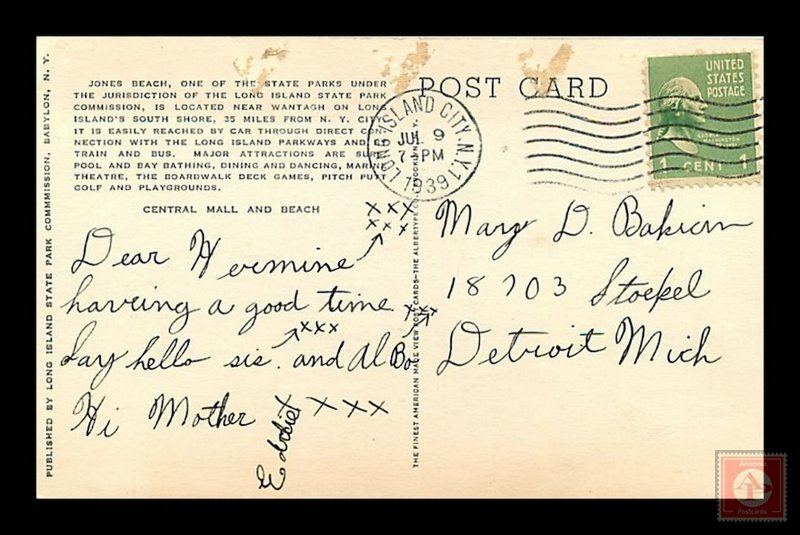 PUBLISHED BY LONG ISLAND STATE PARK COMMMISSION, BABYLON, N. Y.
JONES BEACH, ONE OF THE STATE PARKS UNDER
THE JURISDICTION OF THE LONG ISLAND STATE PARK
COMMISSION, IS LOCATED NEAR WANTAGH ON LONG
ISLAND'S SOUTH SHORE, 35 MILES FROM N. Y. CITY.
IT IS EASILY REACHED BY CAR THROUGH DIRECT CON-
NECTION WITH THE LONG ISLAND PARKWAYS AND BY
TRAIN AND BUS. MAJOR ATTRACTIONS ARE SURF,
POOL AND BAY BATHING, DINING AND DANCING, MARINE
THEATRE, THE BOARDWALK DECK GAMES, PITCH PUTT
GOLF AND PLAYGROUNDS.
CENTRAL MALL AND BEACH
xxx
xxx
Dear Hermine
having a good time. xxx
xxx
Say hello sis. and Al Bo
Hi Mother xxx
Eddie
POST CARD
LONG ISLAND CITY, N.Y. 1
JUL 9
7-PM
1939
UNITED
STATES
POSTAGE
GEORGE
WASHINGTON
1 CENT 1
THE FINEST AMERICAN MADE VIEW POST CARDS—THE ALBERTYPE CO., BROOKLYN, N. Y.
Mary D.
18703 Stoepel
Detroit Mich
Ansonia
Postcards